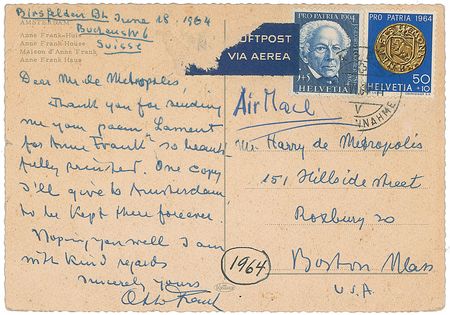 AMSTERDAM
Anne Frank-Huis
Anne Frank-House
Maison d'Anne Frank
Anne Frank Haus
Birsfelden Bl. June 18. 1964
Buchenstr 6
Suisse
Dear Mr de Metropolis
Thank you for sending
me your poem "Lament
for Anne Frank" so beauti
fully printed. One copy
I'll give to Amsterdam
to be kept there forever.
Hoping you well I am
with kind regards
Sincerely yours
Otto Frank
LUFTPOST
VIA AEREA
PRO PATRIA 1964
5+5
HELVETIA
PRO PATRIA 1964
50
+10
HELVETIA
V
Air Mail
Mr. Harry de Metropolis
151 Hillside street
Roxbury 20
Boston Mass
U.S.A.
1964